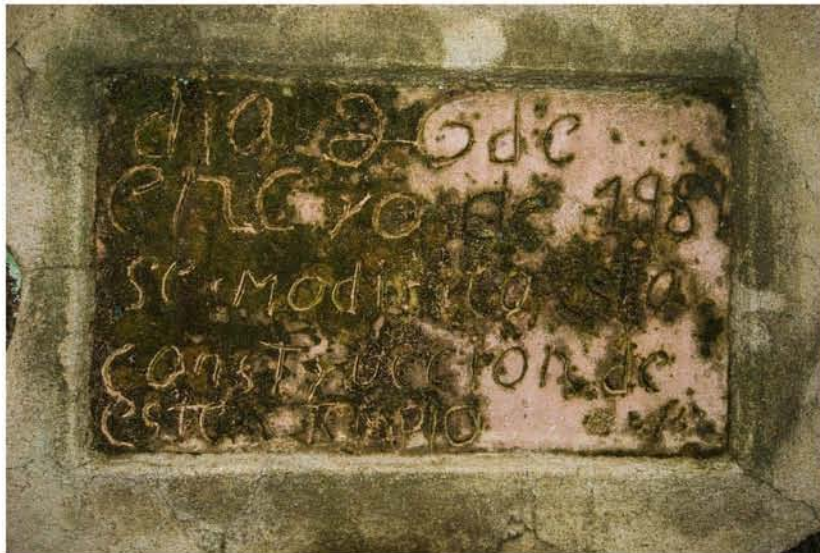 dia 26 de
enero de 198
se modifica esta
construccion de
este templo